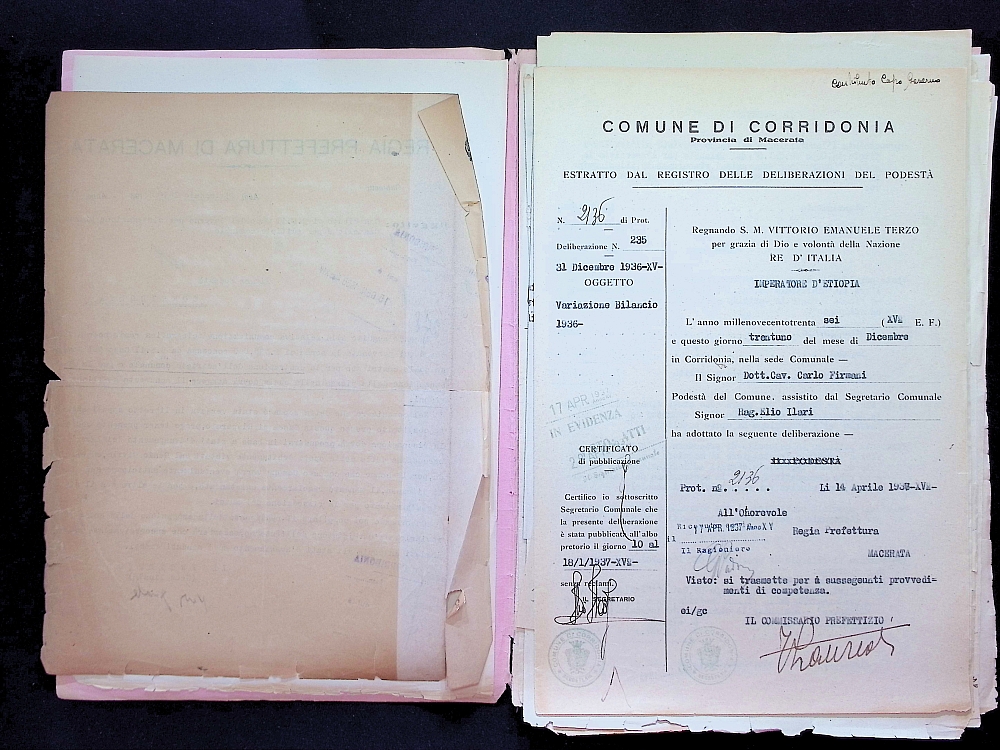 REGIA PREFETTURA DI MACERATA
Contributo Capo Governo
COMUNE DI CORRIDONIA
Provincia di Macerata
ESTRATTO DAL REGISTRO DELLE DELIBERAZIONI DEL PODESTÀ
N. 2136 di Prot.
Deliberazione N. 235
31 Dicembre 1936-XV-
OGGETTO
Variazione Bilancio
1936-
17 APR 193
IN EVIDENZA
ATTI
CERTIFICATO
di pubblicazione
Certifico io sottoscritto
Segretario Comunale che
la presente deliberazione
è stata pubblicata all'albo
pretorio il giorno 10 al
18/1/1937-XVM-
senza reclami.
IL SEGRETARIO
Regnando S. M. VITTORIO EMANUELE TERZO
per grazia di Dio e volontà della Nazione
RE D' ITALIA
IMPERATORE D'ETIOPIA
L' anno millenovecentotrenta sei (XVM E. F.)
e questo giorno trentuno del mese di Dicembre
in Corridonia, nella sede Comunale —
Il Signor Dott.Cav. Carlo Firmani
Podestà del Comune. assistito dal Segretario Comunale
Signor Rag.Elio Ilari
ha adottato la seguente deliberazione —
IL PODESTÀ
Prot. nº. 2136 . . . . . Li 14 Aprile 1937-XVM-
All'Onorevole
17 APR. 1937 Anno XV
Regia Prefettura
il
Il Ragioniere
MACERATA
Visto: si trasmette per i susseguenti provvedi=
menti di competenza.
ei/gc
IL COMMISSARIO PREFETTIZIO